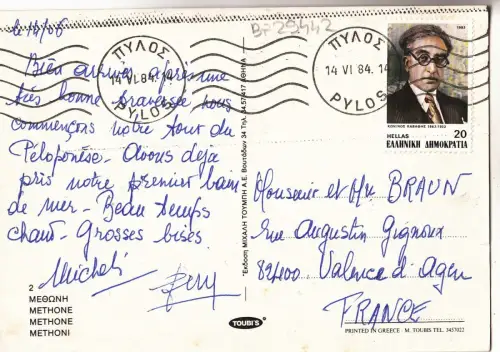 le 14/06
Bien arrivés après une
très bonne traversée nous
commençons notre tour du
Péloponèse. Avons deja
pris notre premier bain
de mer - Beau temps
chaud - Grosses bises
Micheli
2
ΜΕΘΩΝΗ
METHONE
METHONE
METHONI
ΠΥΛΟΣ
14 VI 84. 14
PYLOS
Εκδοση ΜΙΧΑΛΗ ΤΟΥΜΠΗ Α.Ε. Βουτάδων 34 Τηλ. 3457417 ΑΘΗΝΑ
TOUBI'S
BF 29442
ΠΥΛΟΣ
14 VI 84. 14
PYLOS
1983
ΚΩΝ/ΝΟΣ ΚΑΒΑΦΗΣ 1863-1933
HELLAS 20
ΕΛΛΗΝΙΚΗ ΔΗΜΟΚΡΑΤΙΑ
Monsieur et Me BRAUN
rue Augustin Gignoux
82400 Valence d'Agen
FRANCE
PRINTED IN GREECE · M. TOUBIS TEL. 3457022